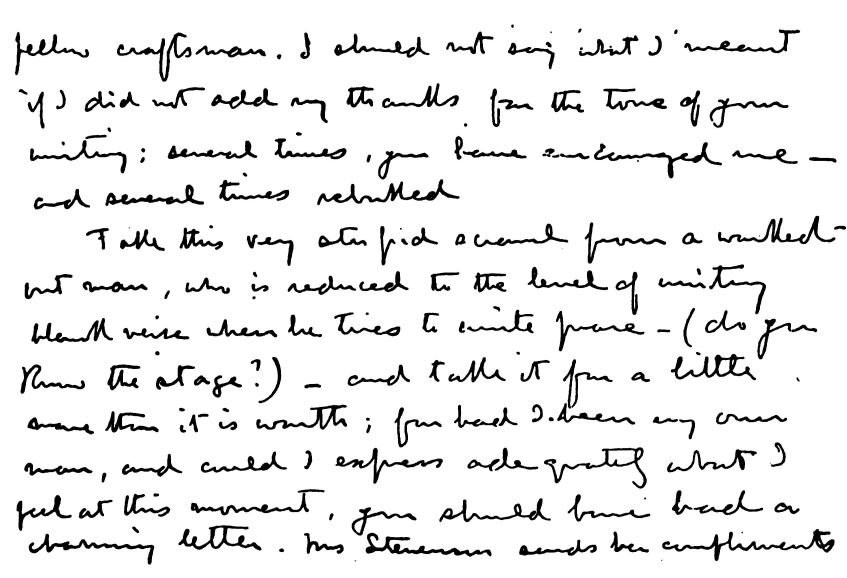 fellow craftsman. I should not say what I meant
if I did not add my thanks for the tone of your
writing; several times, you have encouraged me –
and several times rebutted
Take this very stupid scrawl from a worked-
out man, who is reduced to the level of writing
blank verse when he tries to write prose – (do you
know the stage?) – and take it for a little
more than it is worth; for had I been my own
man, and could I express adequately what I
feel at this moment, you should have had a
charming letter. Mrs Stevenson sends her compliments